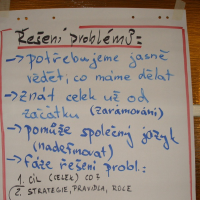 Řešení problémů:
→ potřebujeme jasně
vědět, co máme dělat
→ znát celek už od
začátku (zarámování)
→ pomůže společný jazyk
(nadšřimovat)
→ fáze řešení probl.:
1. CÍL (CELEK) CO?
2. STRATEGIE, PRAVIDLA, ROLE